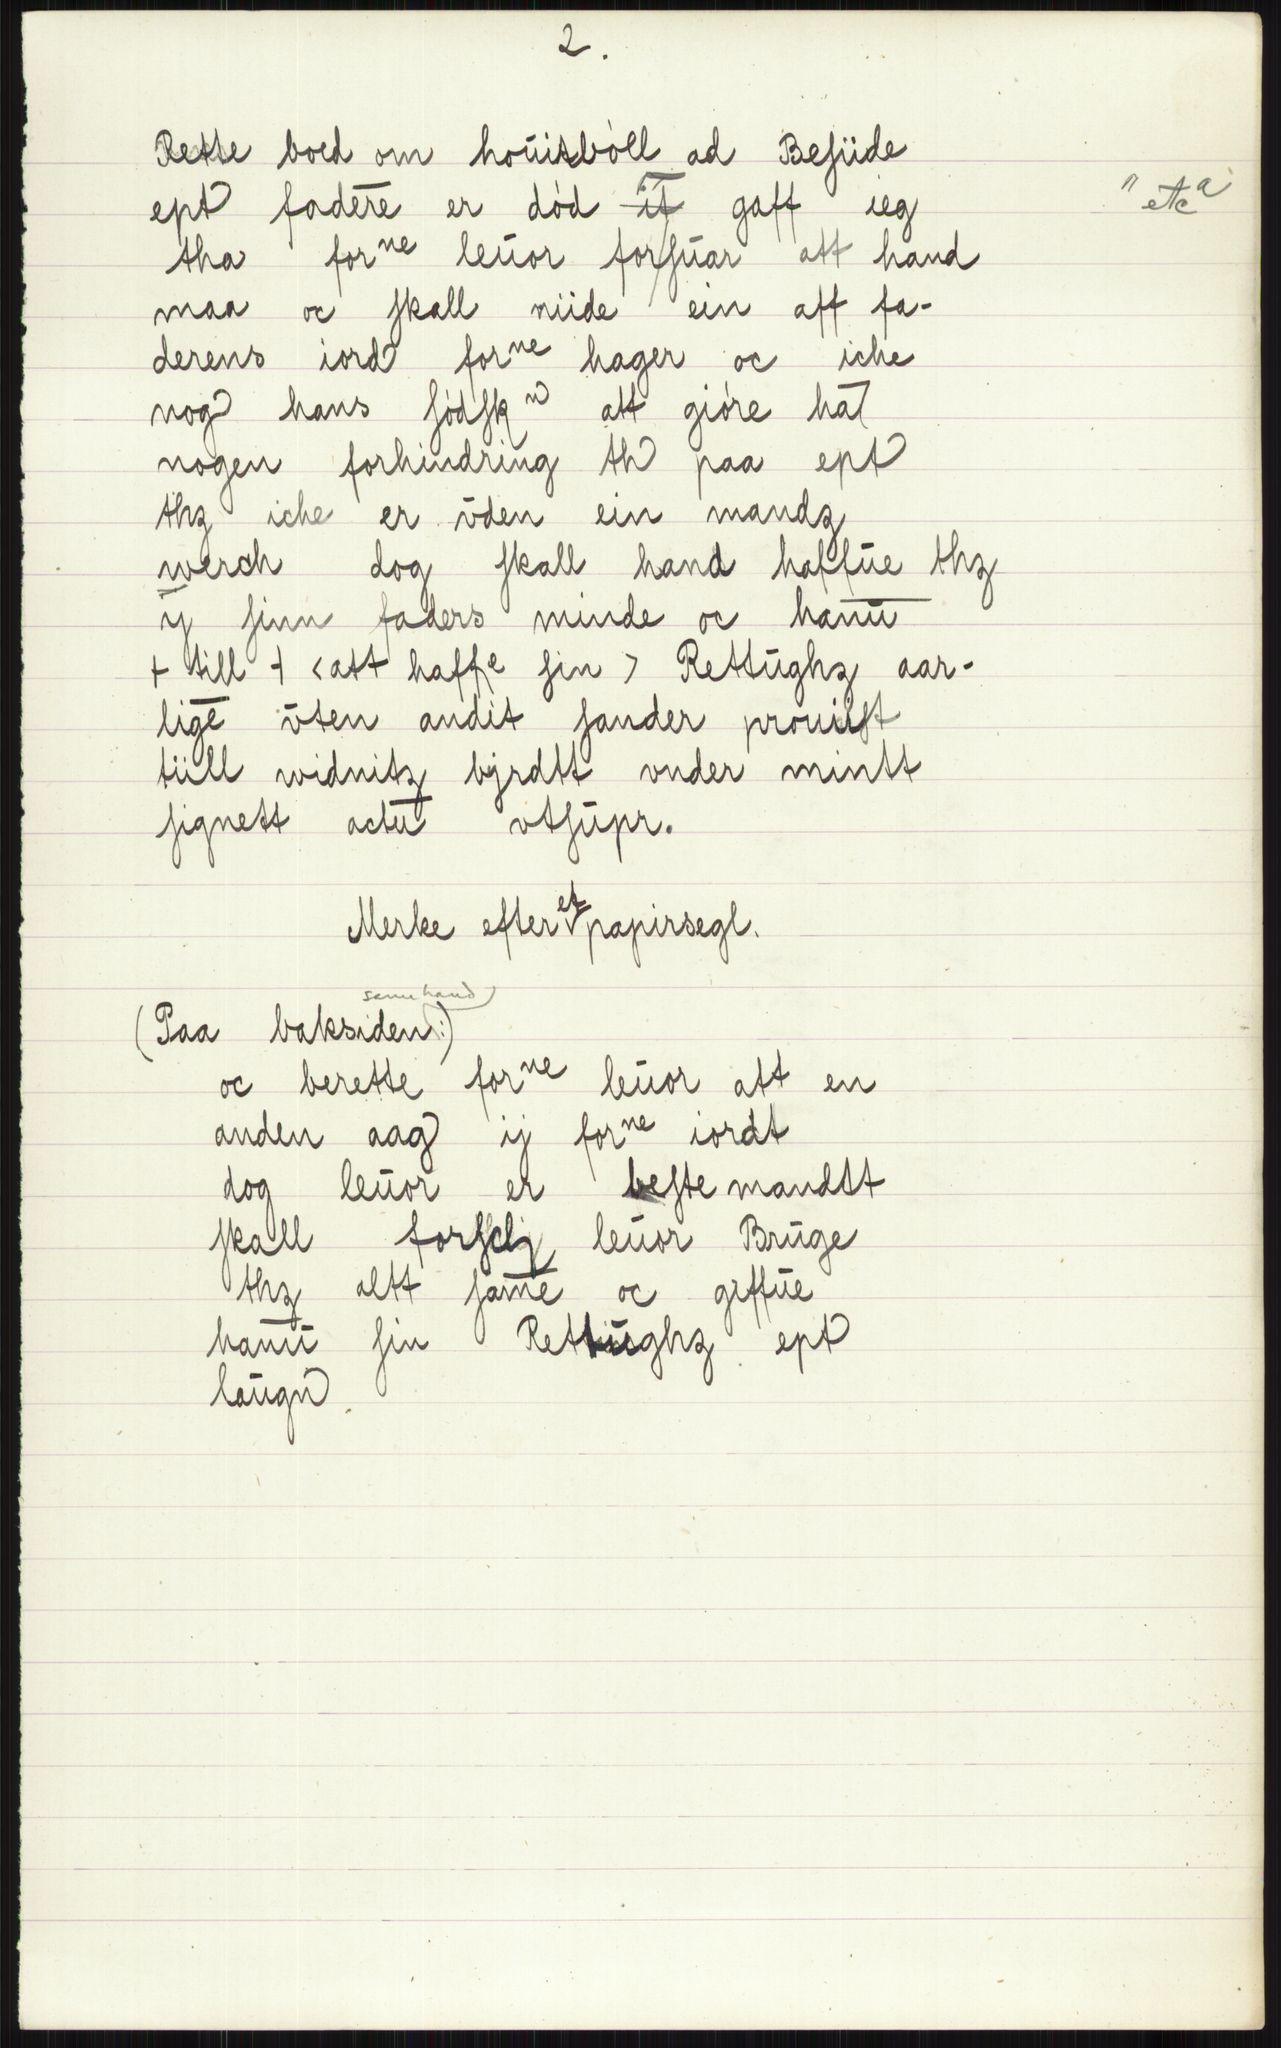 2.
Rette boed om houitböll ad Besiide
ept faderē er död it̄ gaff ieg " etc a
tha forne leuor forsuar att hand
maa oc skall niide ein aff fa-
derens iord forne hager oc iche
nog hans södskn att giöre ha
nogen forhindring th paa ept
thz iche er vden ein mandz
werch dog skall hand haffue thz
ij sinn faders minde oc hanū
+ till + <att haffe sin> Rettughz aar-
ligē vten andit sander prouist
tiill widnitz byrdtt vnder mintt
signett actū vtsupr.
Merke efter et papirsegl.
samme hand
(Paa baksiden:)
oc berette forne leuor att en
anden aag ij forne iordt
dog leuor er beste mandtt
skall leuor Bruge
thz altt samē oc giffue
hanū sin Rettughz ept
laugn